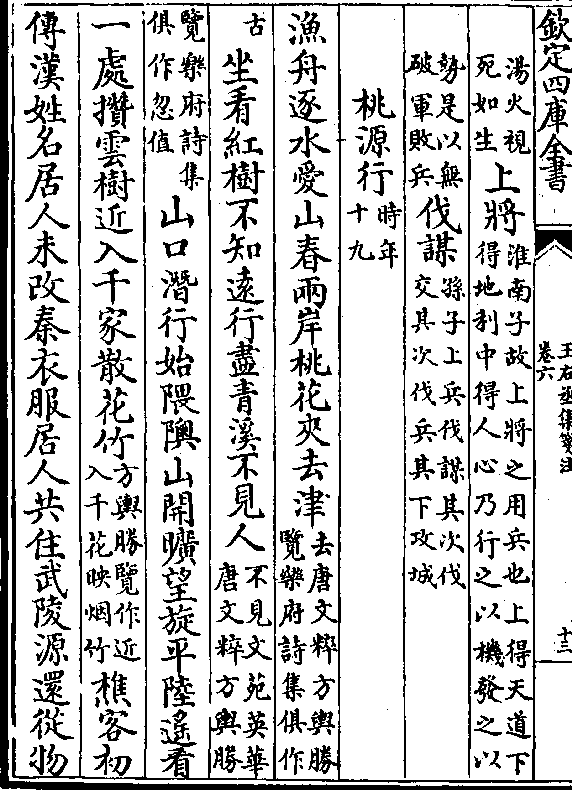 欽定四庫全書
王右丞集箋注
卷六
十三
湯火視死如生上將淮南子故上將之用兵也上得天道下得地利中得人心乃行之以機發之以
勢是以無破軍敗兵伐謀孫子上兵伐謀其次伐交其次伐兵其下攻城
桃源行時年十九
漁舟逐水愛山春兩岸桃花夾去津去唐文粹方輿勝覽樂府詩集俱作
古坐看紅樹不知遠行盡青溪不見人不見文苑英華唐文粹方輿勝
覽樂府詩集俱作忽值山口潛行始隈隩山開曠望旋平陸遙看
一處攢雲樹近入千家散花竹方輿勝覽作近入千花映烟竹樵客初
傳漢姓名居人未改秦衣服居人共住武陵源還從物